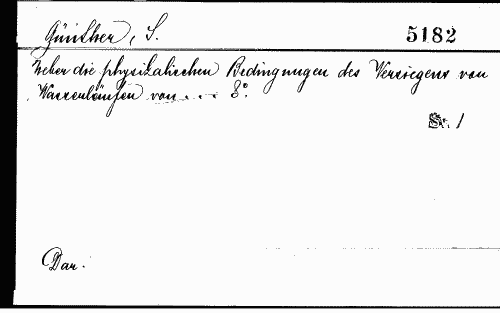 Günther, S. 5182
Ueber die physikalischen Bedingungen des Versiegens von
Wasserläufen von ... 8°.
St. 1
Dar.